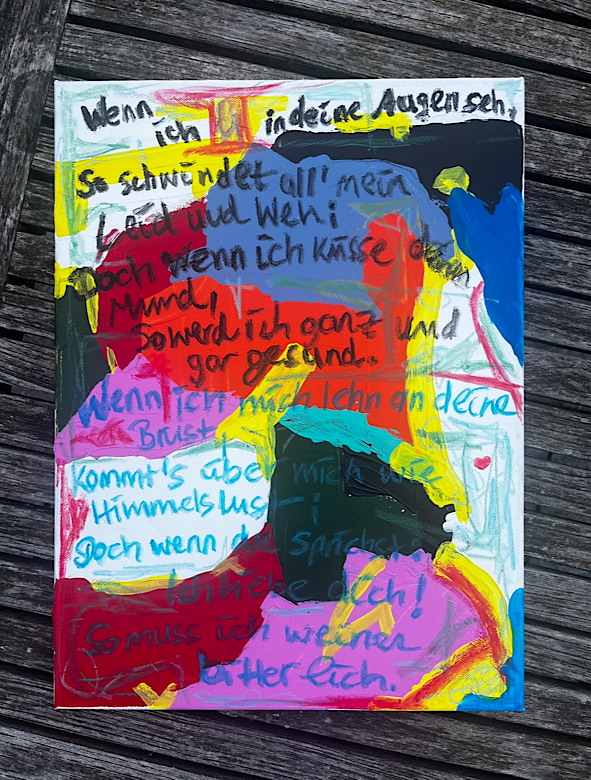 Wenn
ich in deine Augen seh,
So schwindet all' mein
Leid und Weh;
Doch wenn ich küsse dein
Mund,
So werd ich ganz und
gar gesund.
Wenn ich mich lehn an deine
Brust,
Kommt's über mich wie
Himmelslust;
Doch wenn du sprichst:
Ich liebe dich!
So muss ich weinen
bitterlich.